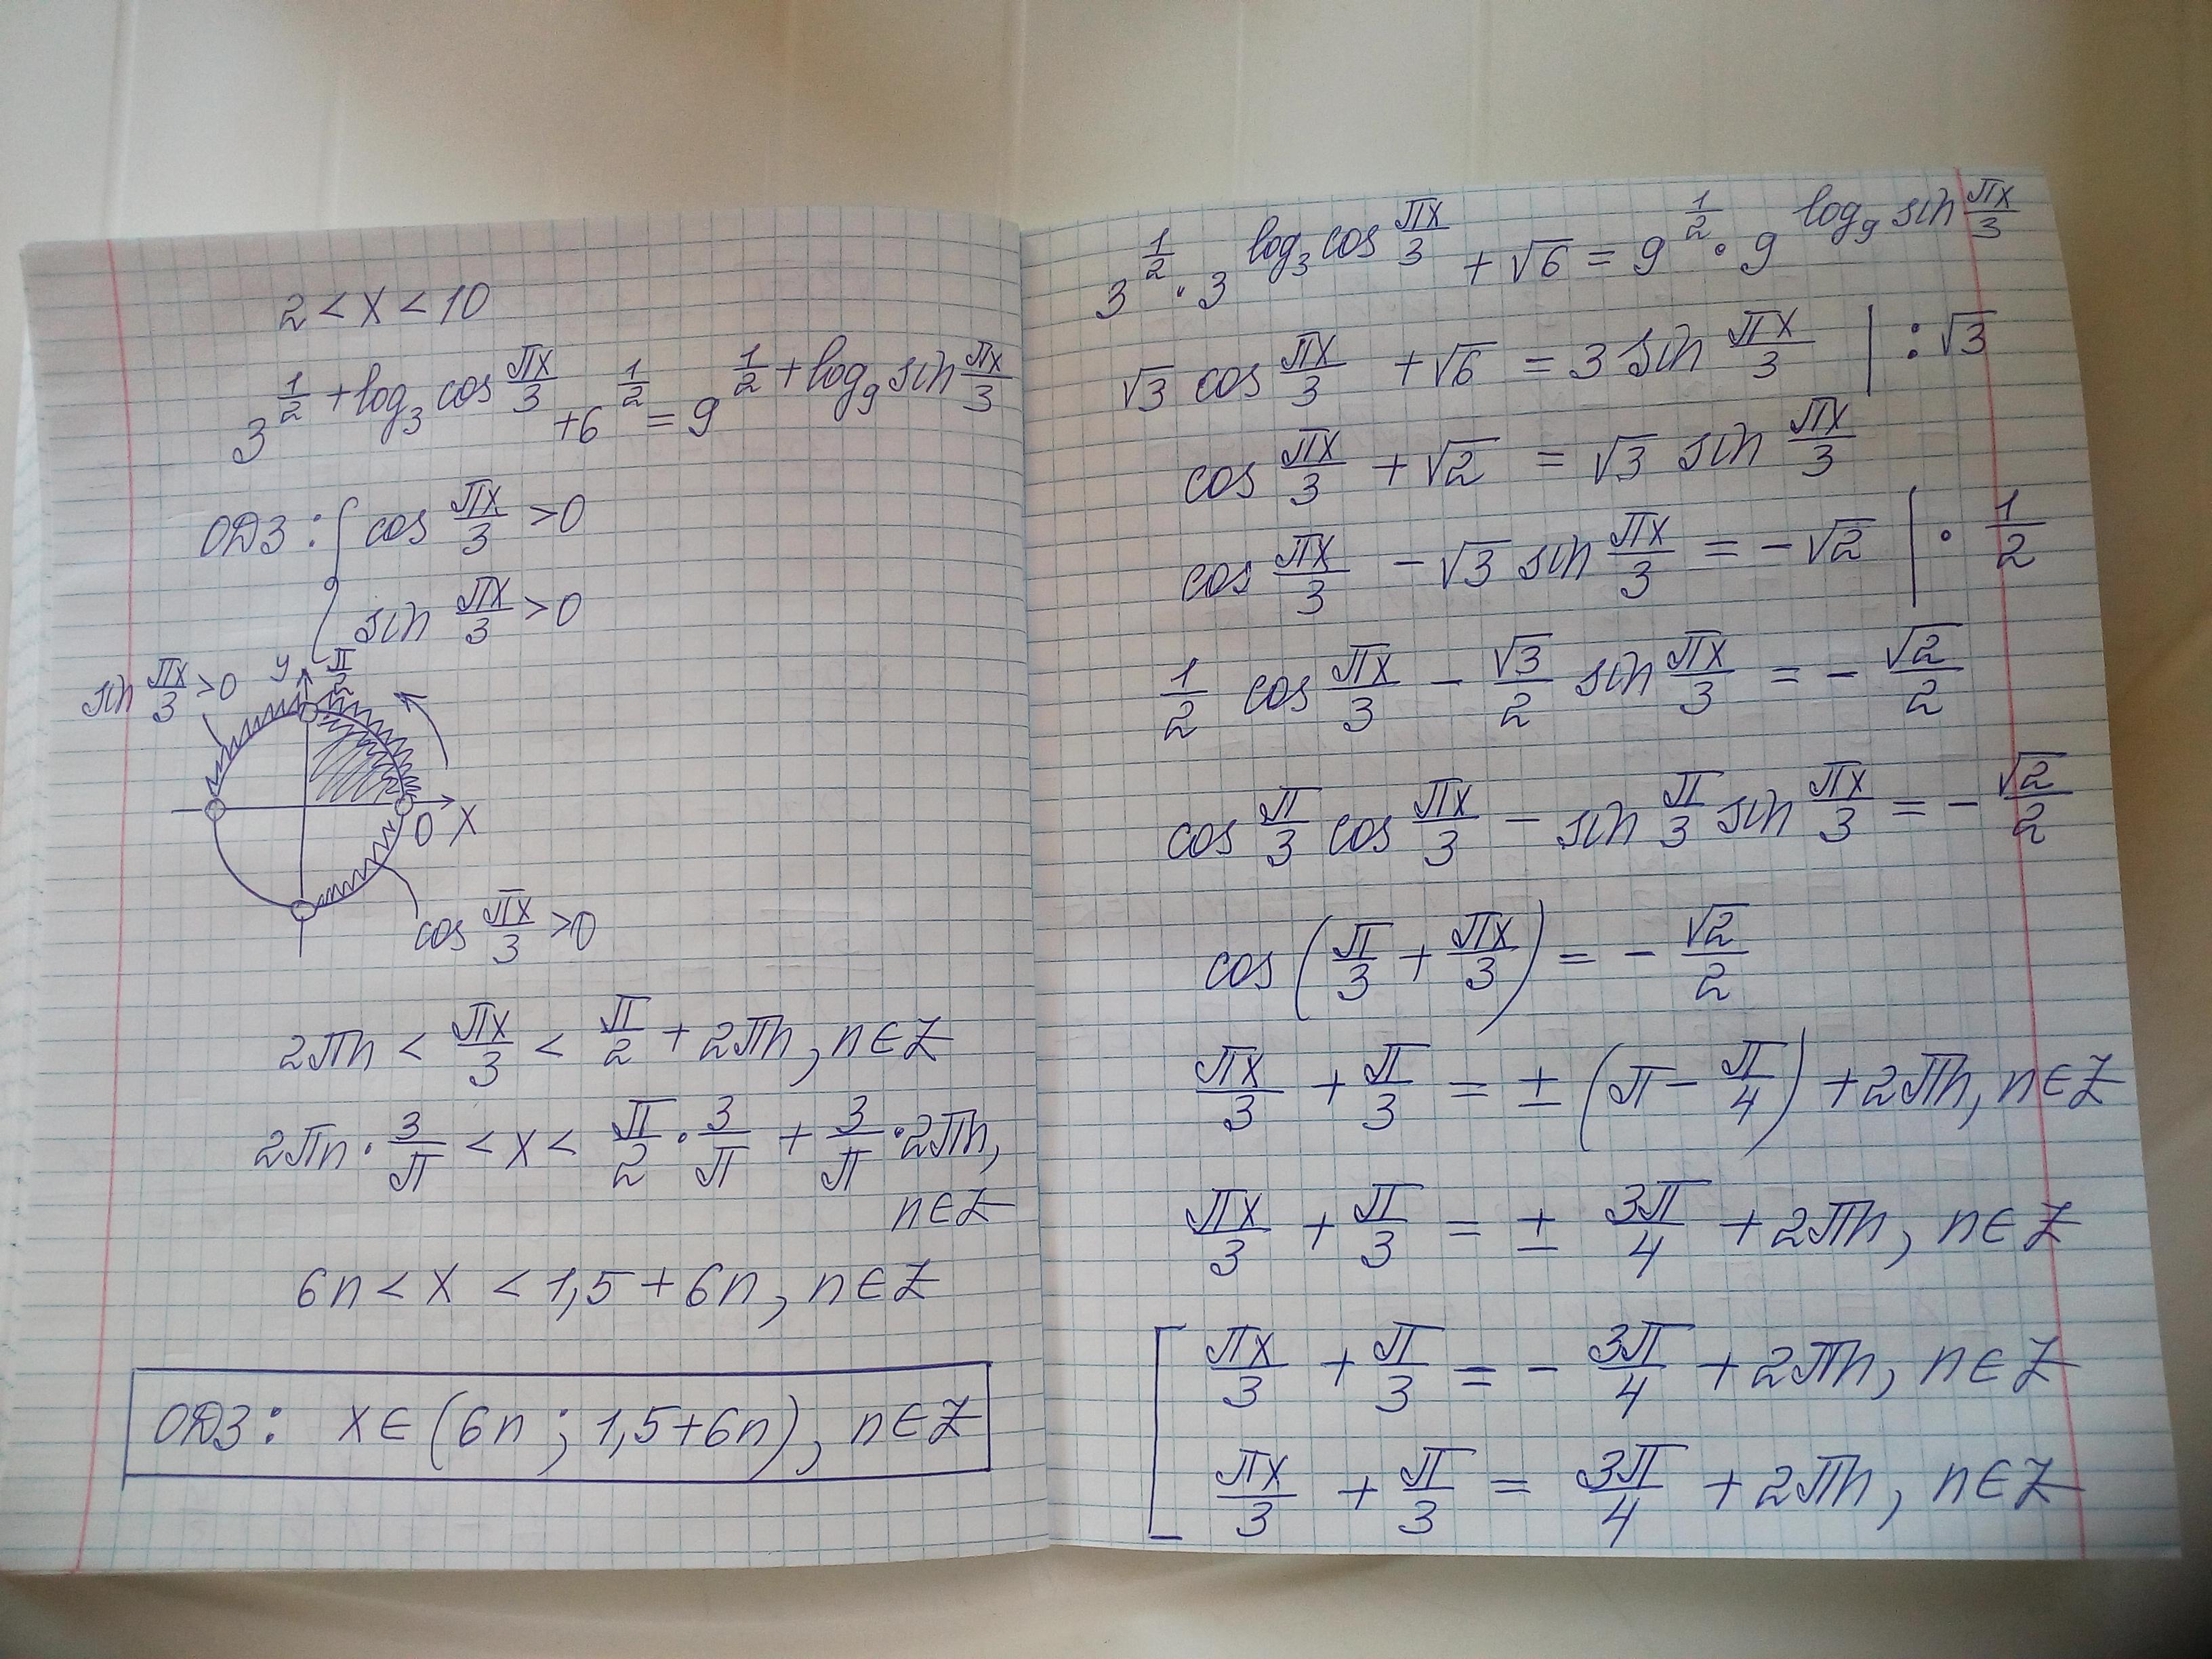 2 < x < 10
3^(1/2 + log₃ cos πx/3) + 6^(1/2) = 9^(1/2 + log₉ sin πx/3)
ОДЗ: { cos πx/3 > 0
sin πx/3 > 0
sin πx/3 > 0 y π/2
0 x
cos πx/3 > 0
2πn < πx/3 < π/2 + 2πn, n∈Z
2πn · 3/π < x < π/2 · 3/π + 3/π · 2πn,
n∈Z
6n < x < 1,5 + 6n, n∈Z
ОДЗ: x∈(6n; 1,5+6n), n∈Z
3^(1/2) · 3^(log₃ cos πx/3) + √6 = 9^(1/2) · 9^(log₉ sin πx/3)
√3 cos πx/3 + √6 = 3 sin πx/3 | : √3
cos πx/3 + √2 = √3 sin πx/3
cos πx/3 - √3 sin πx/3 = -√2 | · 1/2
1/2 cos πx/3 - √3/2 sin πx/3 = - √2/2
cos π/3 cos πx/3 - sin π/3 sin πx/3 = - √2/2
cos(π/3 + πx/3) = - √2/2
πx/3 + π/3 = ± (π - π/4) + 2πn, n∈Z
πx/3 + π/3 = ± 3π/4 + 2πn, n∈Z
[ πx/3 + π/3 = - 3π/4 + 2πn, n∈Z
πx/3 + π/3 = 3π/4 + 2πn, n∈Z